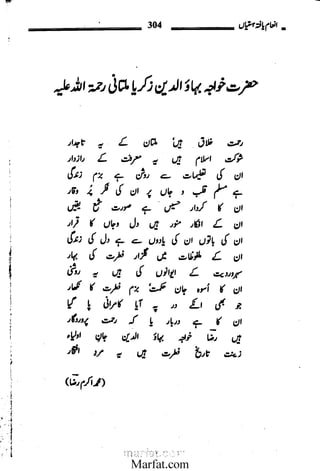 انعام یافتہ ہستیاں
304
حضرت خواجہ بہاؤ الدین زکریا ملتانی رحمۃ اللہ علیہ
رحمت خلاق ہیں ملتان کے یہ تاجدار
شوکت اسلام ہیں یہ معرفت کے رازدار
ان کی تعلیمات سے روشن ہے بزم زندگی
ہے مسلم قلب و جاں پر ان کی فکر پر وقار
ان کا کردار حسیں ہے صورت شمع یقیں
ان کے افکار منور ہیں دل وجاں کا قرار
ان کی باتوں ان کی یادوں سے ہے دل کی زندگی
ان کے ملفوظات میں گلزار فطرت کی بہار
سہروردیت کے ایوانوں کی ہیں یہ روشنی
ان کا اسوہ جان حکمت بزم فطرت کا نکھار
جو بھی انکے در پہ آیا کامرانی پا گیا
ان کا ہے دربار پر رحمت پروردگار
ہیں رضا خواجہ بہاؤ الدین جان اولیاء
زینت تاریخ فطرت ہیں یہ مرد افتخار
(محمد اکرم رضا)
marfat.com
Marfat.com